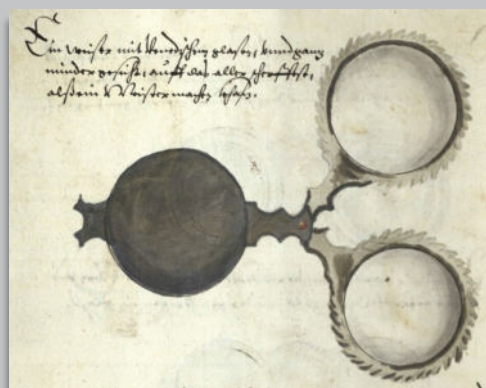 Ein meister mit Venedischen glasen, vnnd ganz
minder gesicht, auff das aller scherffest,
alß ein Meister machen